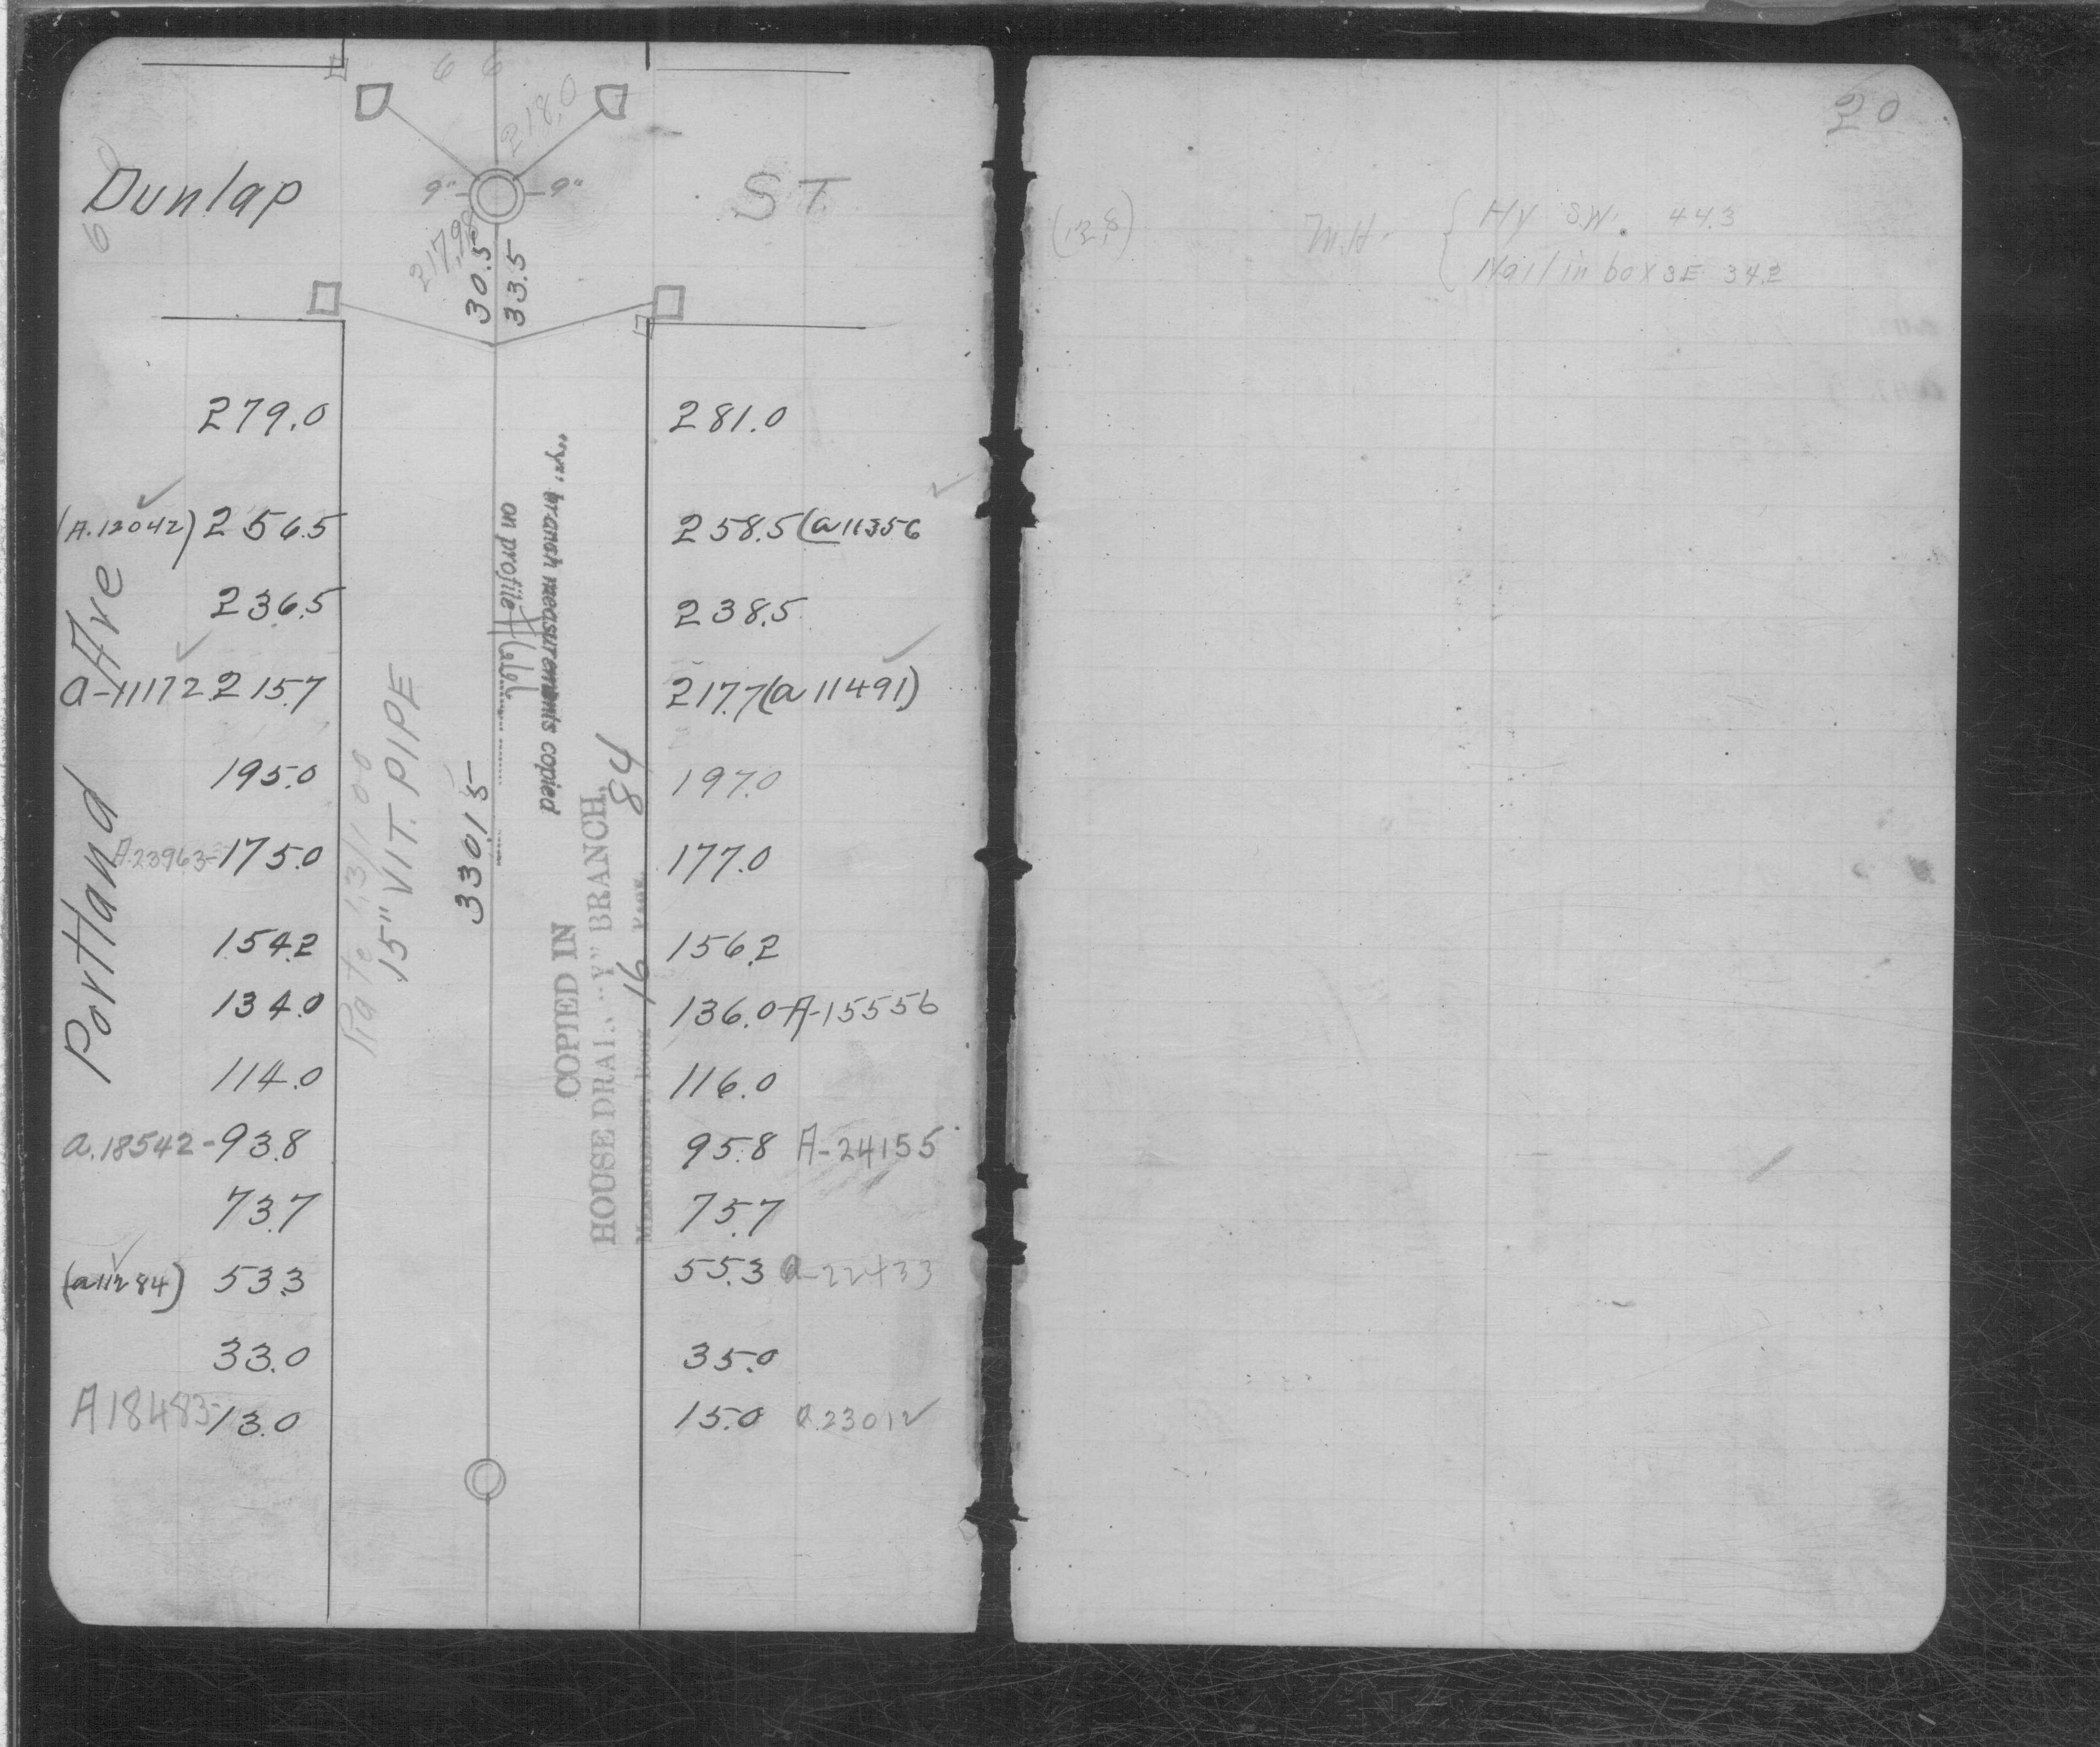 6 6
218.0
60
Dunlap
ST.
9"
9"
217.98
30.5
33.5
279.0 281.0
(A.12042) 256.5 258.5 (a11356
236.5 238.5
a-11172 215.7 217.7 (a 11491)
195.0 197.0
A.23963- 175.0 177.0
154.2 156.2
134.0 136.0-A-15556
114.0 116.0
a.18542- 93.8 95.8 A-24155
73.7 75.7
(a11284) 53.3 55.3 a-22433
33.0 35.0
A18483- 13.0 15.0 a.23012
Portland Ave
Rate 1.31 00
15" VIT. PIPE
330.15
"Y" branch measurements copied
on profile
COPIED IN
HOUSE DRAIN "Y" BRANCH,
MEASUREMENT, BOOK 16 PAGE 84
20
(12.8)
M.H. { Hy S.W. 44.3
Nail in box SE 34.2